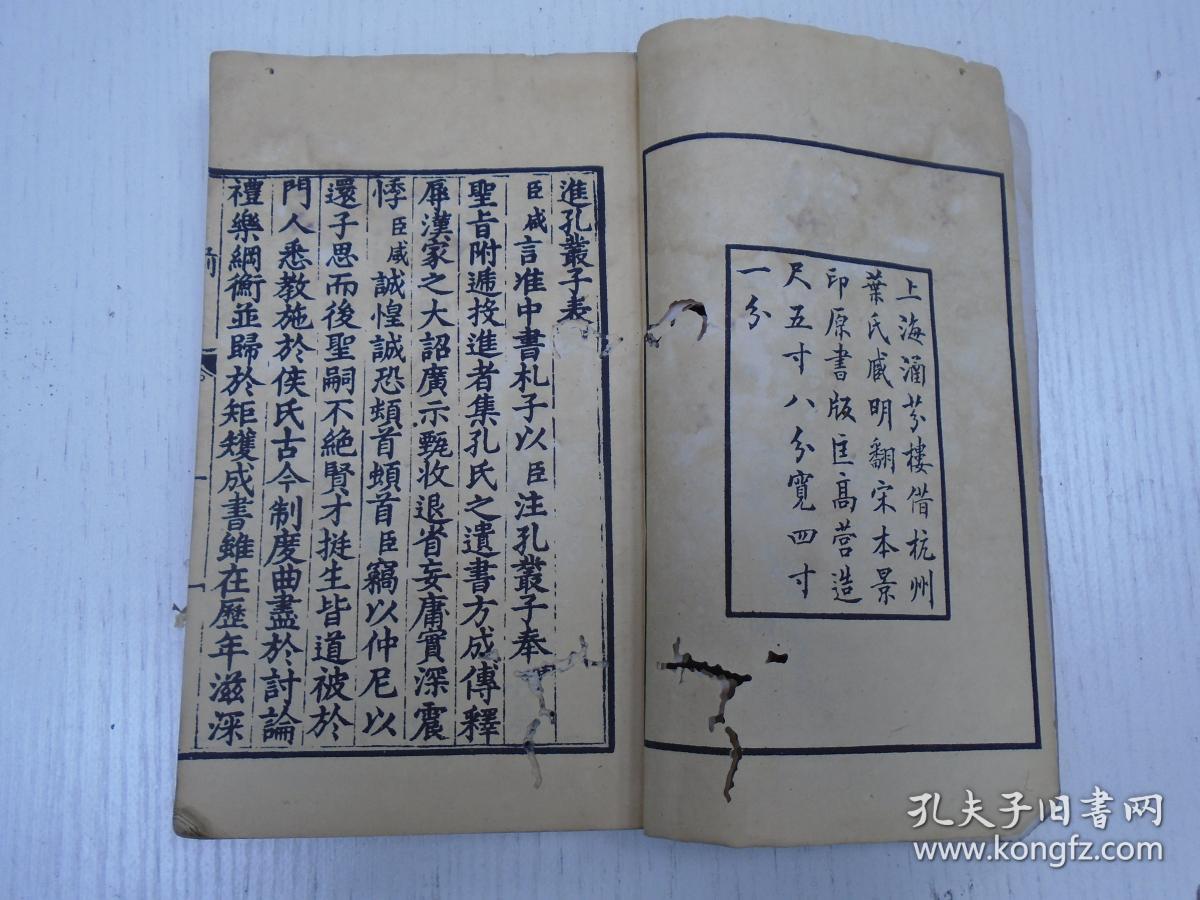 上海涵芬樓借杭州
葉氏臧明翻宋本景
印原書版匡高營造
尺五寸八分寬四寸
一分
進孔叢子表
臣咸言准中書札子以臣注孔叢子奉
聖旨附遞投進者集孔氏之遺書方成傳釋
辱漢家之大詔廣示甄收退省妄庸實深震
悸臣咸誠惶誠恐頓首頓首臣竊以仲尼以
還子思而後聖嗣不絕賢才挺生皆道被於
門人悉教施於侯氏古今制度曲盡於討論
禮樂綱衡並歸於矩矱成書雖在歷年滋深
孔夫子旧书网
www.kongfz.com